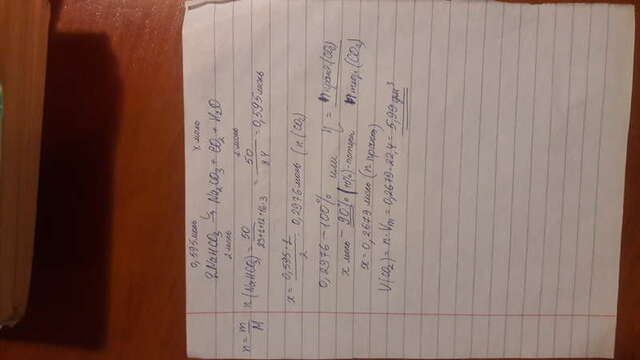 0,595 моль x моль
2NaHCO3 t→ Na2CO3 + CO2 + H2O
2 моль 1 моль
n = m/M n(NaHCO3) = 50/(23+1+12+16·3) = 50/84 = 0,595 моль
x = 0,595·1/2 = 0,2976 моль (n.(CO2)
0,2976 – 100% или η = n практ.(CO2)/n теор.(CO2)
x моль – 90% (η%)
x = 0,2679 моль (n практ)
V(CO2) = n·Vm = 0,2679·22,4 = 5,99 дм³